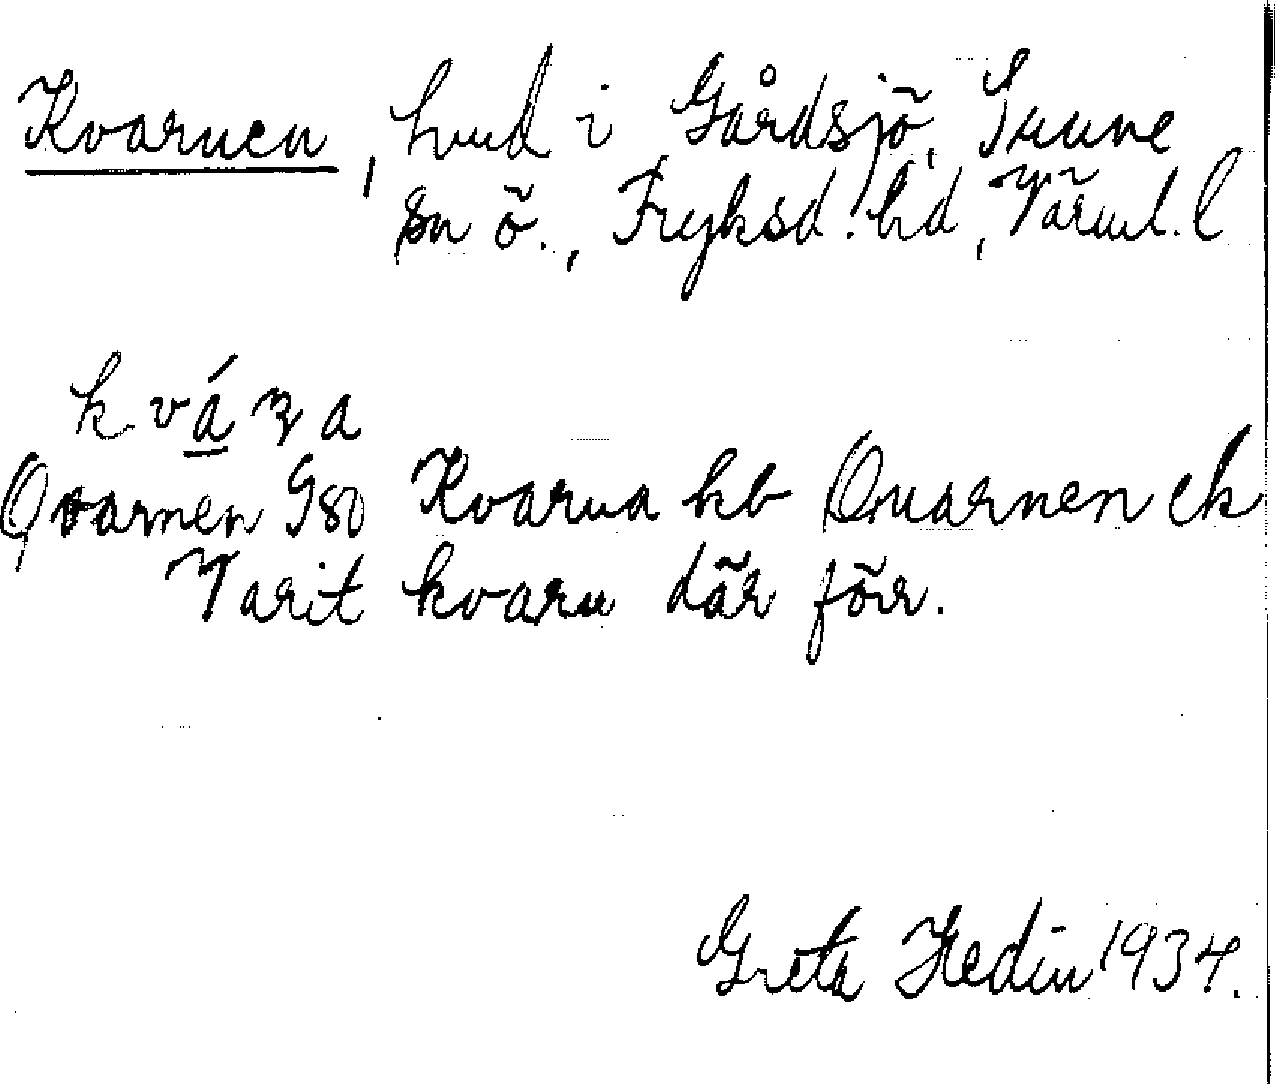 Kvarnen, hmd i Gårdsjö, Sunne
sn ö., Fryksd. hd, Värml. l
k v á ɳ a
Qvarnen G80 Kvarna hb Qvarnen ek
Varit kvarn där förr.
Greta Hedin 1934.